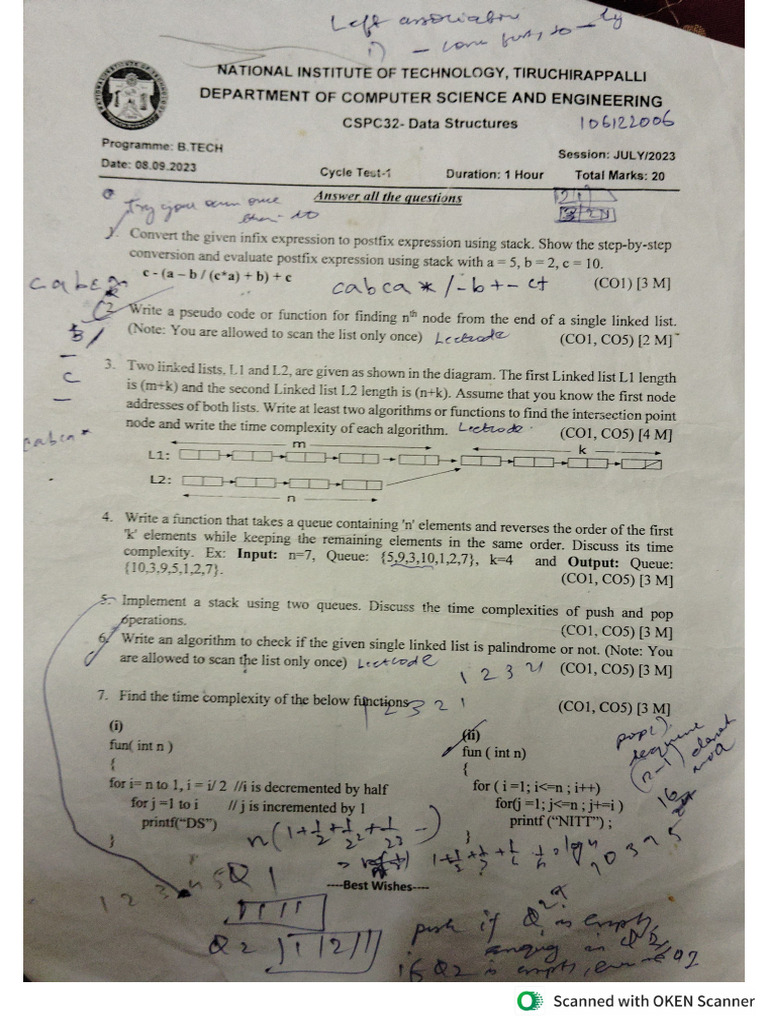 Left associative
i)
NATIONAL INSTITUTE OF TECHNOLOGY, TIRUCHIRAPPALLI
DEPARTMENT OF COMPUTER SCIENCE AND ENGINEERING
CSPC32- Data Structures
106122006
Programme: B.TECH
Session: JULY/2023
Date: 08.09.2023
Cycle Test-1
Duration: 1 Hour
Total Marks: 20
Answer all the questions
1. Convert the given infix expression to postfix expression using stack. Show the step-by-step
conversion and evaluate postfix expression using stack with a = 5, b = 2, c = 10.
c - (a – b / (c*a) + b) + c
cabca*/-b+-c+
(CO1) [3 M]
2. Write a pseudo code or function for finding nth node from the end of a single linked list.
(Note: You are allowed to scan the list only once)
Leetcode
(CO1, CO5) [2 M]
3. Two linked lists, L1 and L2, are given as shown in the diagram. The first Linked list L1 length
is (m+k) and the second Linked list L2 length is (n+k). Assume that you know the first node
addresses of both lists. Write at least two algorithms or functions to find the intersection point
node and write the time complexity of each algorithm.
Leetcode
(CO1, CO5) [4 M]
cabca*
m
k
L1:
L2:
n
4. Write a function that takes a queue containing 'n' elements and reverses the order of the first
'k' elements while keeping the remaining elements in the same order. Discuss its time
complexity. Ex: Input: n=7, Queue: {5,9,3,10,1,2,7}, k=4 and Output: Queue:
{10,3,9,5,1,2,7}.
(CO1, CO5) [3 M]
5. Implement a stack using two queues. Discuss the time complexities of push and pop
operations.
(CO1, CO5) [3 M]
6. Write an algorithm to check if the given single linked list is palindrome or not. (Note: You
are allowed to scan the list only once)
Leetcode
(CO1, CO5) [3 M]
1 2 3 2 1
7. Find the time complexity of the below functions
(CO1, CO5) [3 M]
1 2 3 2 1
(i)
fun( int n )
{
for i= n to 1, i = i/ 2 //i is decremented by half
for j =1 to i // j is incremented by 1
printf("DS")
}
(ii)
fun ( int n)
{
for ( i =1; i<=n ; i++)
for(j =1; j<=n ; j+=i )
printf ("NITT") ;
}
pop()
(n-1)
----Best Wishes----
Q 1
Q 2
push if Q2 is empty
if Q2 is empty,
Scanned with OKEN Scanner